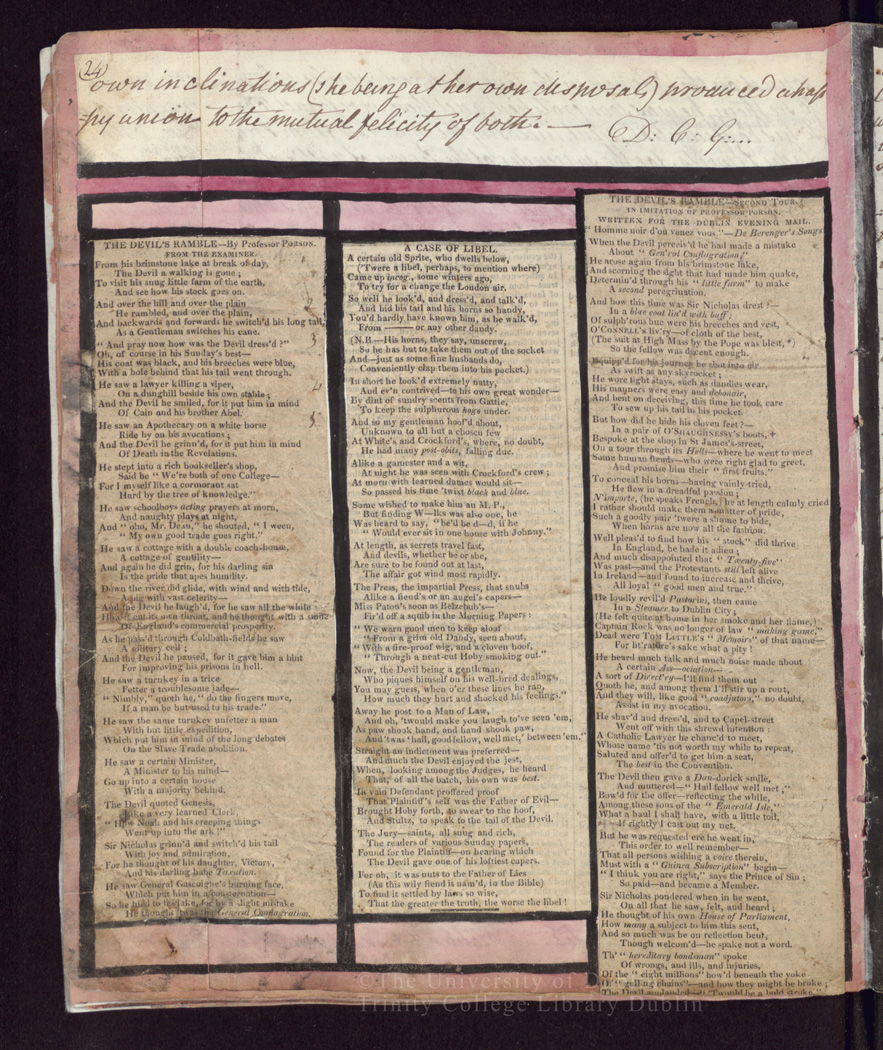 (24)
own inclinations (she being at her own disposal) produced a hap
=py union to the mutual felicity of both. —— D: C: G:...
THE DEVIL'S RAMBLE—By Professor PORSON.
FROM THE EXAMINER.
From his brimstone lake at break of day,
The Devil a walking is gone ;
To visit his snug little farm of the earth,
And see how his stock goes on.
And over the hill and over the plain
He rambled, and over the plain,
And backwards and forwards he switch'd his long tail,
As a Gentleman switches his cane.
"And pray now how was the Devil dress'd ?"
Oh, of course in his Sunday's best—
His coat was black, and his breeches were blue,
With a hole behind that his tail went through.
He saw a lawyer killing a viper,
On a dunghill beside his own stable ;
And the Devil he smiled, for it put him in mind
Of Cain and his brother Abel.
He saw an Apothecary on a white horse
Ride by on his avocations ;
And the Devil he grinn'd, for it put him in mind
Of Death in the Revelations.
He stept into a rich bookseller's shop,
Said he "We're both of one College—
For I myself like a cormorant sat
Hard by the tree of knowledge."
He saw schoolboys acting prayers at morn,
And naughty plays at night,
And "oho, Mr. Dean," he shouted, "I ween,
"My own good trade goes right."
He saw a cottage with a double coach-house,
A cottage of gentility—
And again he did grin, for his darling sin
Is the pride that apes humility.
Down the river did glide, with wind and with tide,
A pig with vast celerity—
And the Devil he laugh'd, for he saw all the while
It cut its own throat, and he thought with a smile
Of England's commercial prosperity.
As he pass'd through Coldbath-fields he saw
A solitary cell ;
And the Devil he paused, for it gave him a hint
For improving his prisons in hell.
He saw a turnkey in a trice
Fetter a troublesome jade—
"Nimbly," quoth he, "do the fingers move,
If a man be but used to his trade."
He saw the same turnkey unfetter a man
With but little expedition,
Which put him in mind of the long debates
On the Slave Trade abolition.
He saw a certain Minister,
A Minister to his mind—
Go up into a certain house
With a majority behind.
The Devil quoted Genesis,
Like a very learned Clerk,
"How Noah and his creeping things
Went up into the ark !"
Sir Nicholas grinn'd and switch'd his tail
With joy and admiration,
For he thought of his daughter, Victory,
And his darling babe Taxation.
He saw General Gascoigne's burning face,
Which put him in a consternation—
So he hied to the lake, for by a slight mistake
He thought 'twas the General Conflagration.
3
3
4
5
A CASE OF LIBEL.
A certain old Sprite, who dwells below,
('Twere a libel, perhaps, to mention where)
Came up incog., some winters ago,
To try for a change the London air.
So well he look'd, and dress'd, and talk'd,
And hid his tail and horns so handy,
You'd hardly have known him, as he walk'd,
From ——— or any other dandy.
(N.B.—His horns, they say, unscrew,
So he has but to take them out of the socket
And—just as some fine husbands do,
Conveniently clap them into his pocket.)
In short he look'd extremely natty,
And ev'n contrived—to his own great wonder—
By dint of sundry scents from Gattie,
To keep the sulphurous hogo under.
And so my gentleman hoof'd about,
Unknown to all but a chosen few
At White's and Crockford's, where, no doubt,
He had many post-obits, falling due.
Alike a gamester and a wit,
At night he was seen with Crockford's crew ;
At morn with learned dames would sit—
So passed his time 'twixt black and blue.
Some wished to make him an M. P.,
But finding W—lks was also one, he
Was heard to say, "he'd be d—d, if he
"Would ever sit in one house with Johnny."
At length, as secrets travel fast,
And devils, whether he or she,
Are sure to be found out at last,
The affair got wind most rapidly.
The Press, the impartial Press, that snubs
Alike a fiend's or an angel's capers—
Miss Paton's soon as Belzebub's—
Fir'd off a squib in the Morning Papers :
"We warn good men to keep aloof
"From a grim old Dandy, seen about,
"With a fire-proof wig, and a cloven hoof,
"Through a neat-cut Hoby smoking out."
Now, the Devil being a gentleman,
Who piques himself on his well-bred dealings,
You may guess, when o'er these lines he ran,
How much they hurt and shocked his feelings."
Away he post to a Man of Law,
And oh, 'twould make you laugh to've seen 'em,
As paw shook hand, and hand shook paw,
And 'twas "hail, good fellow, well met," between 'em."
Straight an indictment was preferred—
And much the Devil enjoyed the jest,
When, looking among the Judges, he heard
That, of all the batch, his own was best.
In vain Defendant proffered proof
That Plaintiff's self was the Father of Evil—
Brought Hoby forth, to swear to the hoof,
And Stultz, to speak to the tail of the Devil.
The Jury—saints, all snug and rich,
The readers of various Sunday papers,
Found for the Plaintiff—on hearing which
The Devil gave one of his loftiest capers.
For oh, it was nuts to the Father of Lies
(As this wily fiend is nam'd, in the Bible)
To find it settled by laws so wise,
That the greater the truth, the worse the libel !
THE DEVIL'S RAMBLE—SECOND TOUR.
IN IMITATION OF PROFESSOR PORSON.
WRITTEN FOR THE DUBLIN EVENING MAIL.
"Homme noir d'où venez vous."—De Berenger's Songs.
When the Devil perceiv'd he had made a mistake
About "Gen'ral Conflagration,"
He rose again from his brimstone lake,
And scorning the sight that had made him quake,
Determin'd through his "little farm" to make
A second peregrination.
And how this time was Sir Nicholas drest ?—
In a blue coat lin'd with buff ;
Of sulph'rous hue were his breeches and vest,
O'CONNEL's liv'ry—of cloth of the best,
(The suit at High Mass by the Pope was blest,*)
So the fellow was decent enough.
Equipp'd for his journey he shot into air
As swift as any skyrocket ;
He wore tight stays, such as dandies wear,
His manners were easy and debonair,
And bent on deceiving, this time he took care
To sew up his tail in his pocket.
But how did he hide his cloven feet ?—
In a pair of O'SHAUGHNESSY's boots,+
Bespoke at the shop in St James's-street,
On a tour through its Hells—where he went to meet
Some human fiends—who were right glad to greet,
And promise him their "first fruits."
To conceal his horns—having vainly tried,
He flew in a dreadful passion ;
N'importe, (he speaks French,) he at length calmly cried
I rather should make them a matter of pride,
Such a goodly pair 'twere a shame to hide,
When horns are now all the fashion.
Well pleas'd to find how his "stock" did thrive
In England, he bade it adieu ;
And much disappointed that "Twenty-five"
Was past—and the Protestants still left alive
In Ireland—and found to increase and thrive,
All loyal "good men and true."
He loudly revil'd Pastorini, then came
In a Steamer to Dublin City ;
(He felt quite at home in her smoke and her flame,)
Captain Rock was no longer of law "making game,"
Dead were TOM LITTLE's "Memoirs" of that name—
For lit'rature's sake what a pity !
He heard much talk and much noise made about
A certain Ass-ociation—
A sort of Direct'ry—I'll find them out
Quoth he, and among them I'll stir up a rout,
And they will, like good "coadjutors," no doubt,
Assist in my avocation.
He shav'd and dress'd, and to Capel-street
Went off with this shrewd intention :
A Catholic Lawyer he chanc'd to meet,
Whose name 'tis not worth my while to repeat,
Saluted and offer'd to get him a seat,
The best in the Convention.
The Devil then gave a Don-dorick smile,
And muttered—"Hail fellow well met ;"
Bow'd for the offer—reflecting the while,
Among these sons of the "Emerald Isle,"
What a haul I shall have, with a little toil,
If rightly I cast out my net.
But he was requested ere he went in,
This order to well remember—
That all persons wishing a voice therein,
Must with a "Guinea Subscription" begin—
"I think you are right," says the Prince of Sin ;
So paid—and became a Member.
Sir Nicholas pondered when in he went,
On all that he saw, felt, and heard ;
He thought of his own House of Parliament,
How many a subject to him this sent,
And so much was he on reflection bent,
Though welcom'd—he spoke not a word.
Th' "hereditary bondsman" spoke
Of wrongs, and ills, and injuries,
Of the "eight millions" bow'd beneath the yoke
Of "galling chains"—and how they might be broke ;
The Devil applauded—"'Twould be a bold stroke"
© The University of D
Trinity College Library Dublin